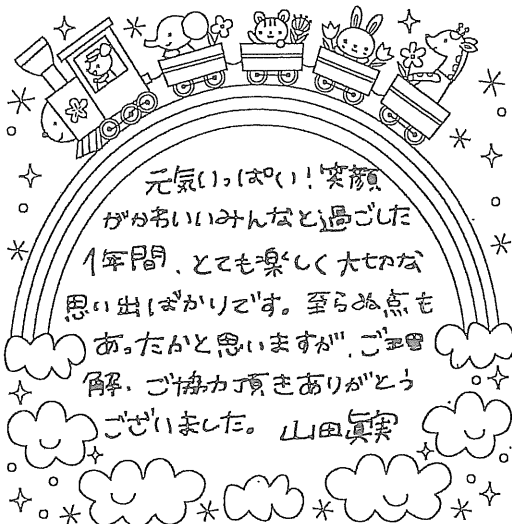 元気いっぱい!笑顔
がかわいいみんなと過ごした
1年間、とても楽しく大切な
思い出ばかりです。至らぬ点も
あったかと思いますが、ご理
解、ご協力頂きありがとう
ございました。 山田眞実